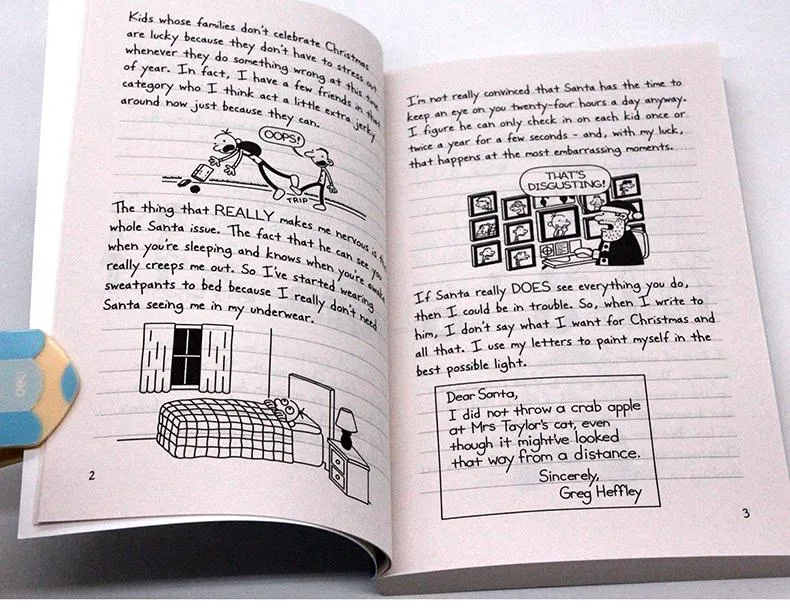 Kids whose families don't celebrate Christmas
are lucky because they don't have to stress out
whenever they do something wrong at this time
of year. In fact, I have a few friends in that
category who I think act a little extra jerky
around now just because they can.
OOPS!
TRIP
The thing that REALLY makes me nervous is the
whole Santa issue. The fact that he can see you
when you're sleeping and knows when you're awake
really creeps me out. So I've started wearing
sweatpants to bed because I really don't need
Santa seeing me in my underwear.
2
I'm not really convinced that Santa has the time to
keep an eye on you twenty-four hours a day anyway.
I figure he can only check in on each kid once or
twice a year for a few seconds - and, with my luck,
that happens at the most embarrassing moments.
THAT'S
DISGUSTING!
If Santa really DOES see everything you do,
then I could be in trouble. So, when I write to
him, I don't say what I want for Christmas and
all that. I use my letters to paint myself in the
best possible light.
Dear Santa,
I did not throw a crab apple
at Mrs Taylor's cat, even
though it might've looked
that way from a distance.
Sincerely,
Greg Heffley
3
deli